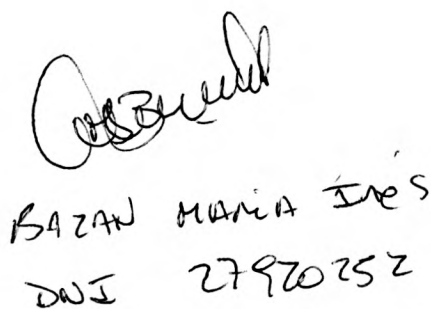 BAZAN MARIA INÉS
DNI 27920252